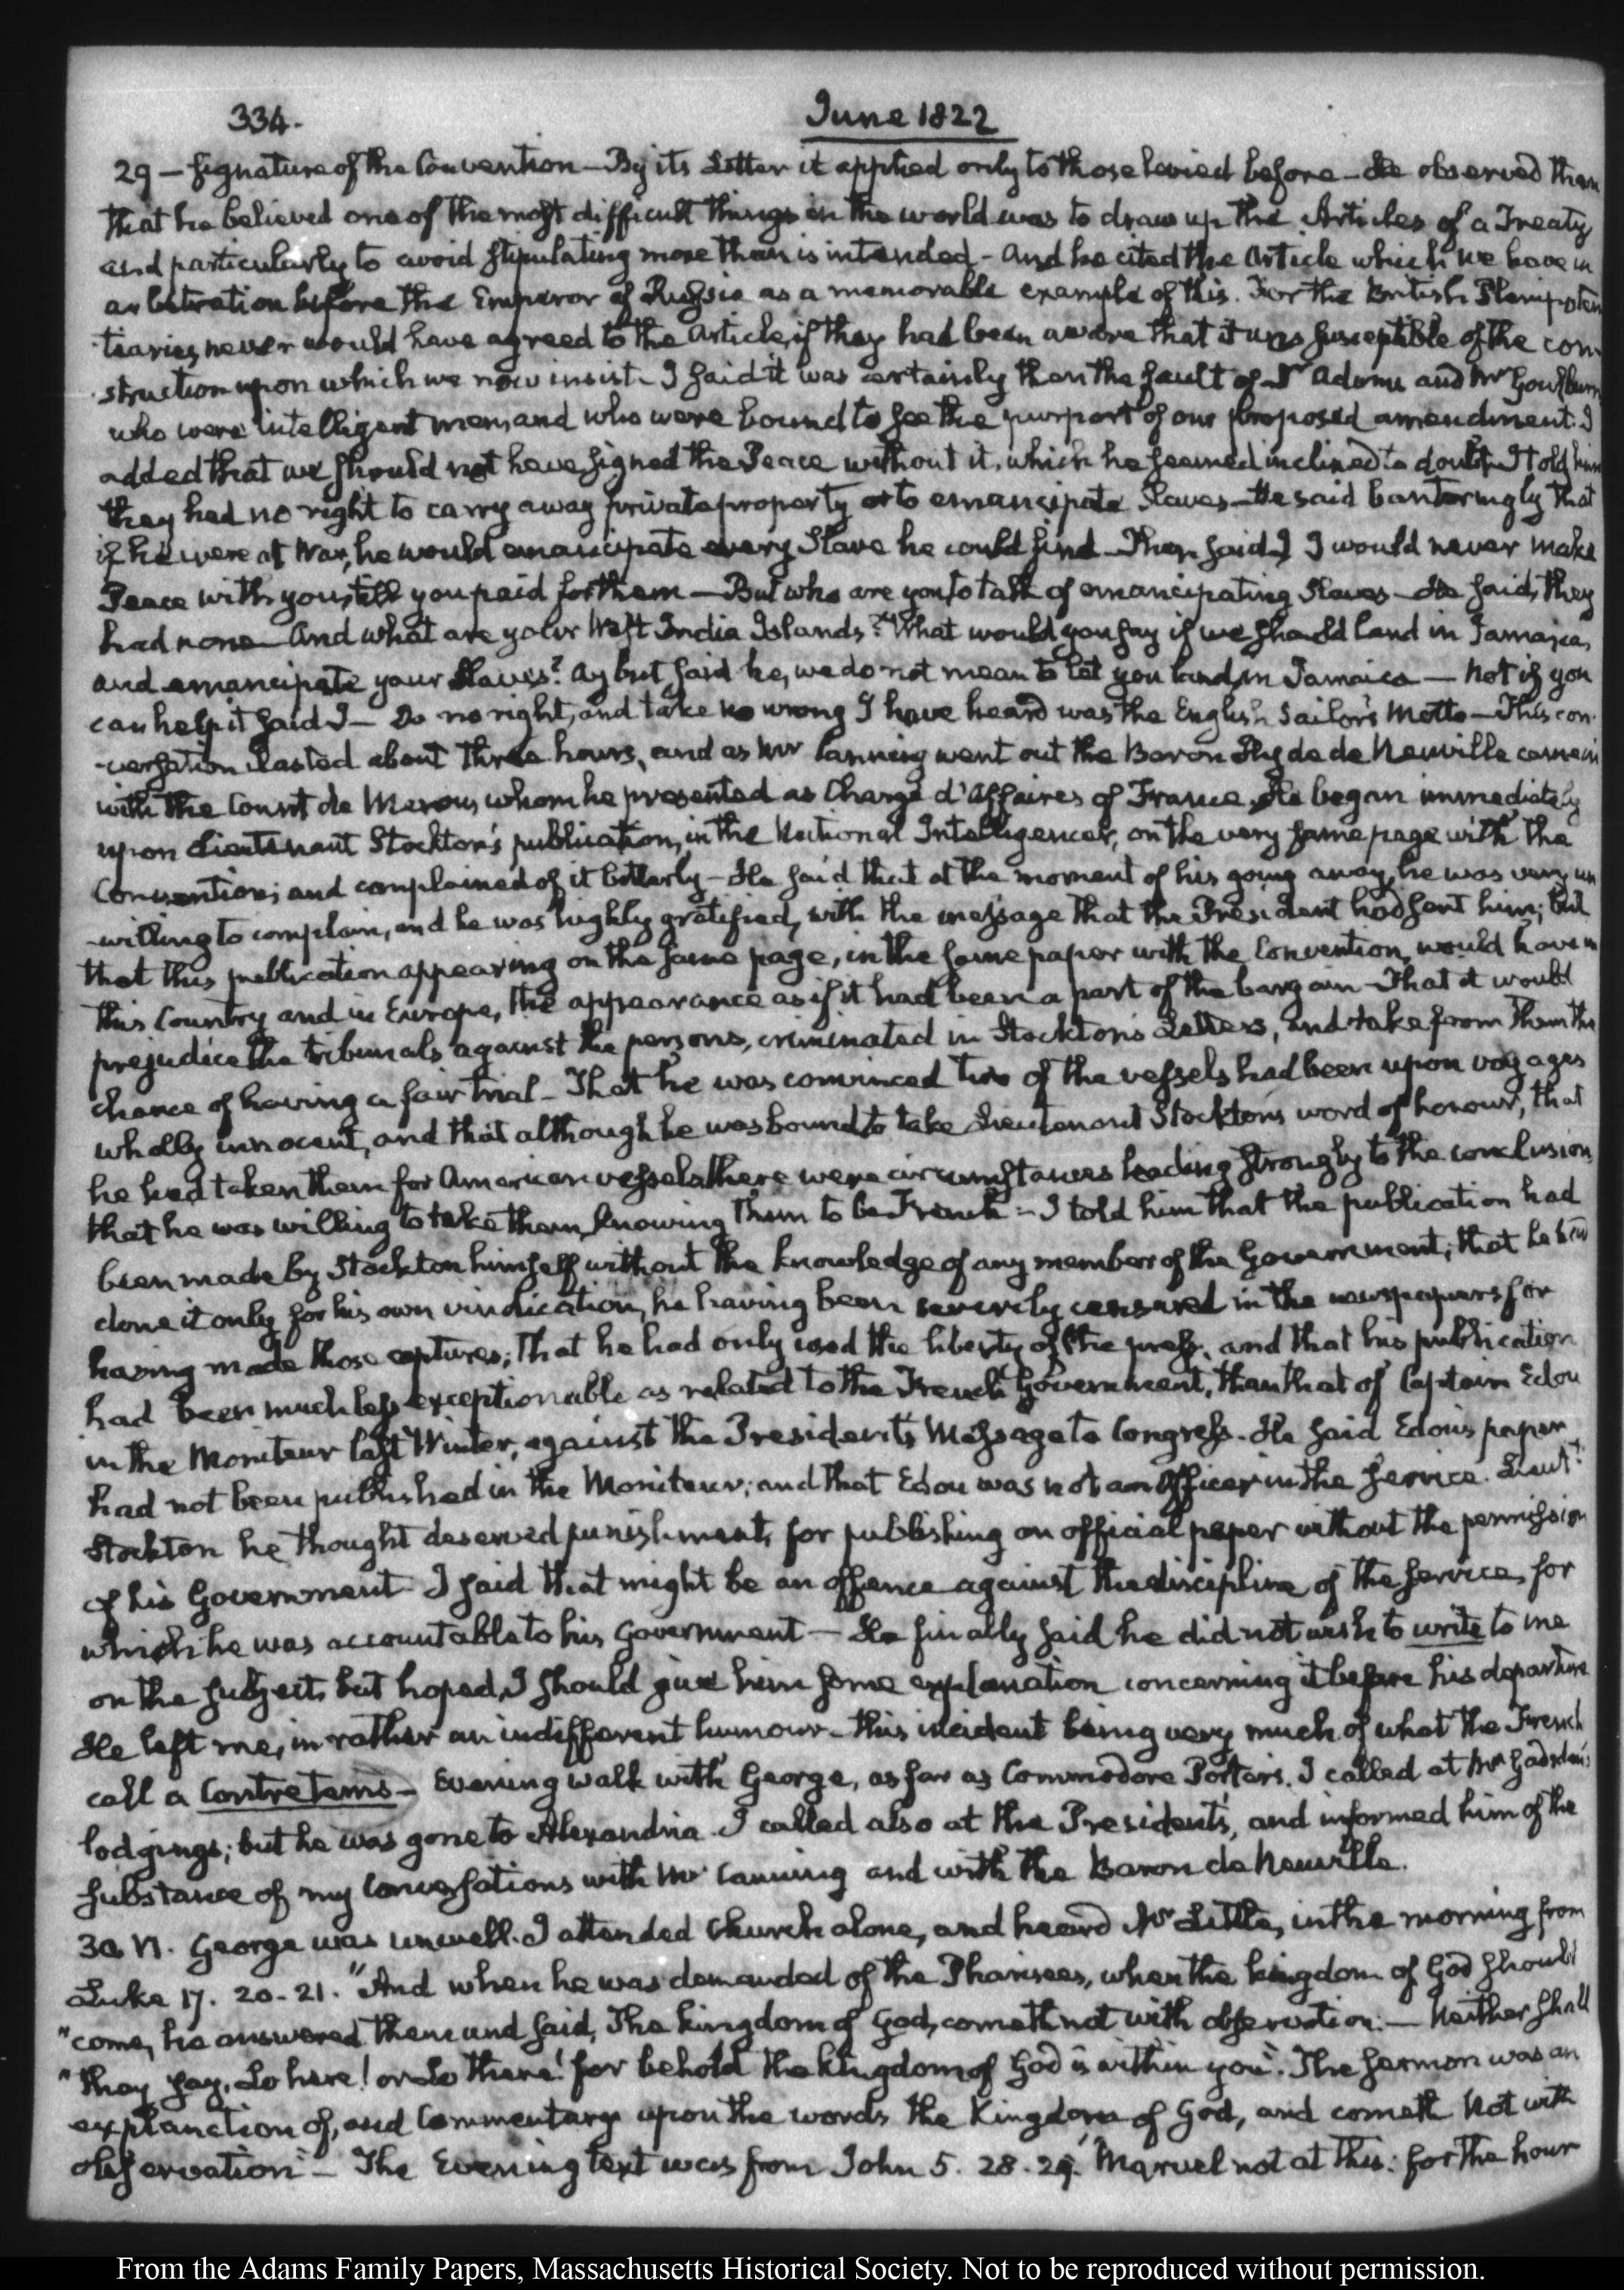 334.
June 1822
29 — signature of the Convention — By its Letter it applied only to those levied before — He observed then
that he believed one of the most difficult things in the world was to draw up the Articles of a Treaty
and particularly to avoid stipulating more than is intended — And he cited the Article which we have in
arbitration before the Emperor of Russia as a memorable example of this. For the British Plenipoten
tiaries never would have agreed to the Article, if they had been aware that it was susceptible of the con-
struction upon which we now insist — I said it was certainly then the fault of Dr Adams and Mr Goulburn
who were intelligent men, and who were bound to see the purport of our proposed amendment. I
added that we should not have signed the Peace without it, which he seemed inclined to doubt — I told him
they had no right to carry away private property or to emancipate Slaves — He said banteringly that
if he were at War, he would emancipate every Slave he could find — Then said I I would never make
Peace with you, till you paid for them — But who are you to talk of emancipating Slaves — He said, they
had none — And what are your West India Islands? What would you say if we should land in Jamaica,
and emancipate your Slaves? Ay but said he, we do not mean to let you land, in Jamaica — Not if you
can help it said I — Do no right, and take no wrong I have heard was the English Sailor's Motto — This con-
-versation lasted about three hours, and as Mr Canning went out the Baron Hyde de Neuville came in
with the Count de Menou, whom he presented as Chargé d'Affaires of France. He began immediately
upon Lieutenant Stockton's publication, in the National Intelligencer, on the very same page with the
Convention; and complained of it bitterly — He said that at the moment of his going away, he was very un
-willing to complain, and he was highly gratified, with the message that the President had sent him; but
that this publication appearing on the same page, in the same paper with the Convention, would have in
this Country and in Europe, the appearance as if it had been a part of the bargain — That it would
prejudice the tribunals against the persons, criminated in Stockton's Letters, and take from them the
chance of having a fair trial — That he was convinced two of the vessels had been upon voyages
wholly innocent, and that although he was bound to take Lieutenant Stockton's word of honour, that
he had taken them for American vessels there were circumstances leading strongly to the conclusion,
that he was willing to take them, knowing them to be French — I told him that the publication had
been made by Stockton himself without the knowledge of any member of the Government; that he had
done it only for his own vindication, he having been severely censured in the newspapers for
having made those captures; That he had only used the liberty of the press, and that his publication
had been much less exceptionable as related to the French Government, than that of Captain Edou
in the Moniteur last Winter, against the President's Message to Congress. He said Edou's paper
had not been published in the Moniteur; and that Edou was not an Officer in the service. Lieutt.
Stockton he thought deserved punishment, for publishing an official paper without the permission
of his Government — I said that might be an offence against the discipline of the service, for
which he was accountable to his Government — He finally said he did not wish to write to me
on the subject, but hoped, I should give him some explanation concerning it before his departure
He left me, in rather an indifferent humour — this incident being very much of what the French
call a Contretems — Evening walk with George, as far as Commodore Porter's. I called at Mr Gadsden's
lodgings; but he was gone to Alexandria. I called also at the President's, and informed him of the
substance of my Conversations with Mr Canning and with the Baron de Neuville.
30. VI. George was unwell. I attended Church alone, and heard Mr Little, in the morning from
Luke 17. 20-21. "And when he was demanded of the Pharisees, when the kingdom of God should
"come, he answered them and said, The kingdom of God, cometh not with observation: — Neither shall
"they say, Lo here! or Lo there! for behold the kingdom of God is within you". The sermon was an
explanation of, and Commentary upon the words, the Kingdom of God, and cometh not with
observation — The Evening text was from John 5. 28. 29. "Marvel not at this: for the hour
From the Adams Family Papers, Massachusetts Historical Society. Not to be reproduced without permission.